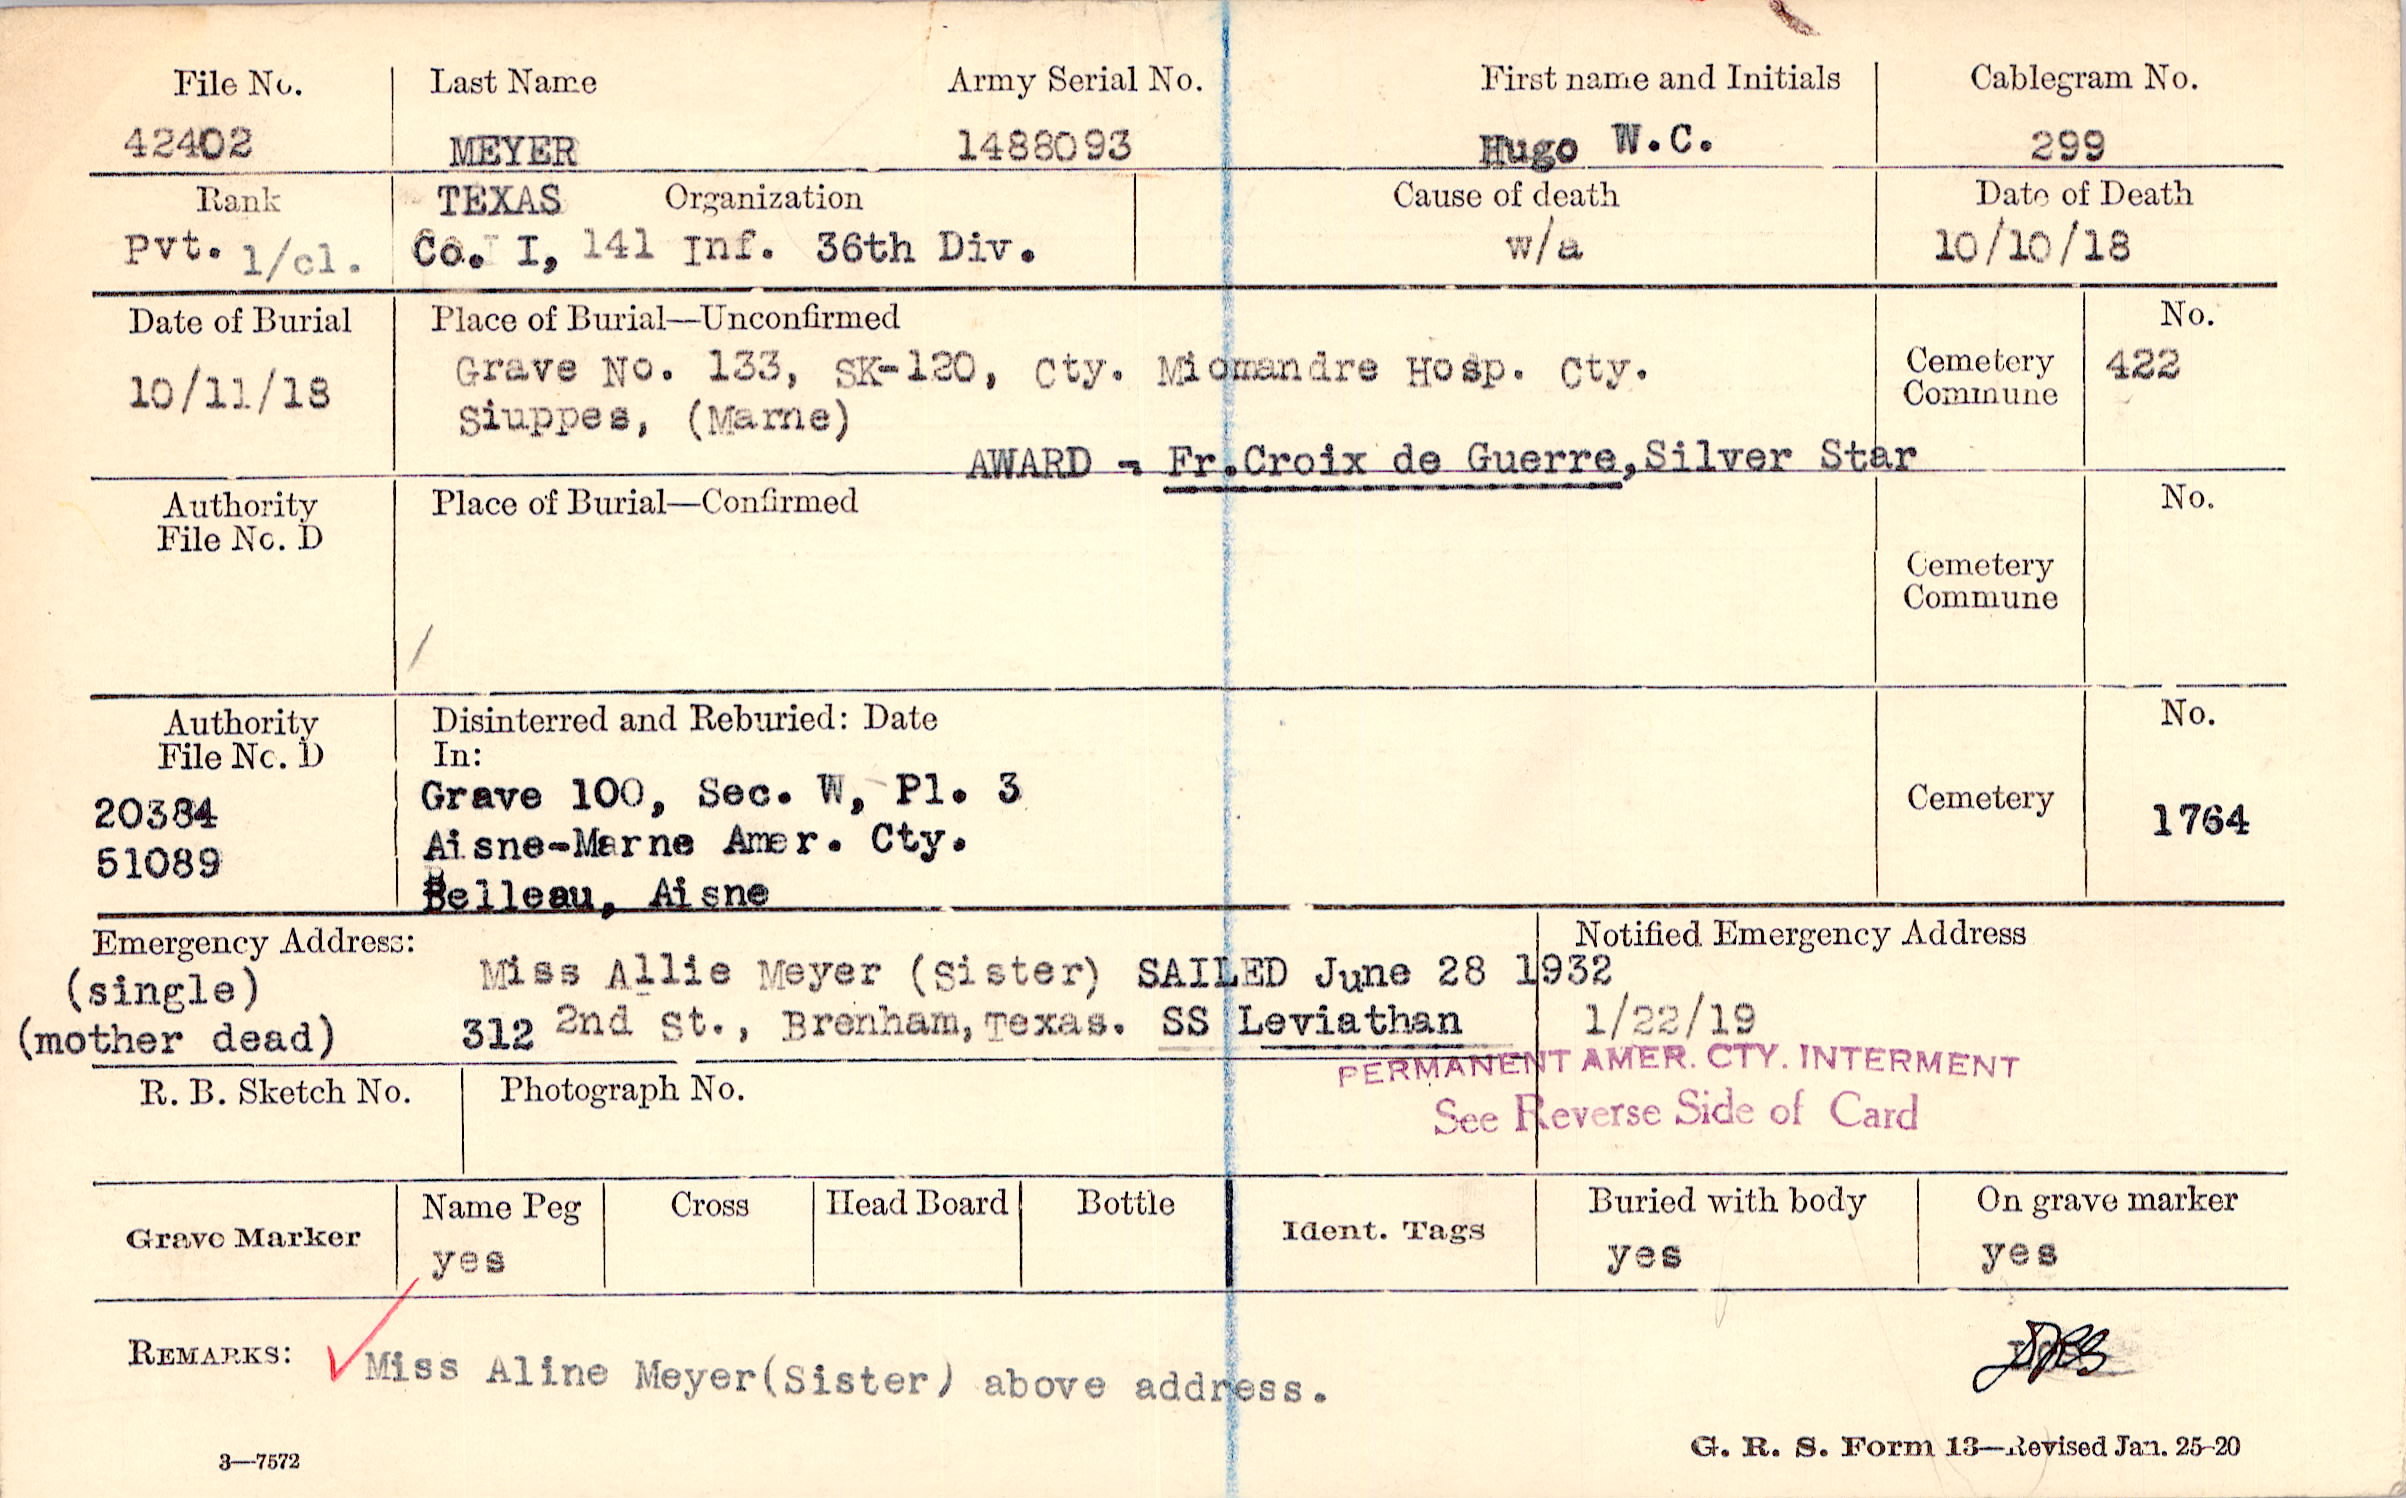 File No. Last Name Army Serial No. First name and Initials Cablegram No.
42402 MEYER 1488093 Hugo W.C. 299
Rank TEXAS Organization Cause of death Date of Death
Pvt. 1/cl. Co. I, 141 Inf. 36th Div. w/a 10/10/18
Date of Burial Place of Burial—Unconfirmed No.
10/11/18 Grave No. 133, SK-120, Cty. Miomandre Hosp. Cty. Cemetery Commune 422
Siuppes, (Marne)
AWARD - Fr.Croix de Guerre,Silver Star
Authority File No. D Place of Burial—Confirmed No.
Cemetery
Commune
Authority Disinterred and Reburied: Date No.
File No. D In:
20384 Grave 100, Sec. W, Pl. 3 Cemetery 1764
51089 Aisne-Marne Amer. Cty.
Belleau, Aisne
Emergency Address: Notified Emergency Address
(single) Miss Allie Meyer (Sister) SAILED June 28 1932
(mother dead) 312 2nd St., Brenham,Texas. SS Leviathan 1/22/19
PERMANENT AMER. CTY. INTERMENT
R. B. Sketch No. Photograph No. See Reverse Side of Card
Grave Marker Name Peg Cross Head Board Bottle Ident. Tags Buried with body On grave marker
yes yes yes
REMARKS: Miss Aline Meyer(Sister) above address.
3—7572 G. R. S. Form 13—Revised Jan. 25-20